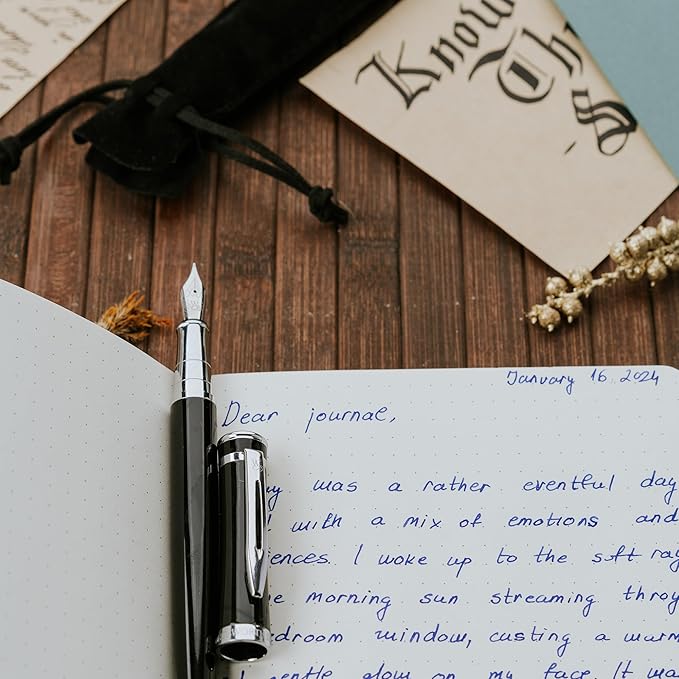 Know
Th
S
January 16 2024
Dear journal,
was a rather eventful day
with a mix of emotions and
I woke up to the soft ray
morning sun streaming throug
window, casting a warm
gentle glow on my face. It wa